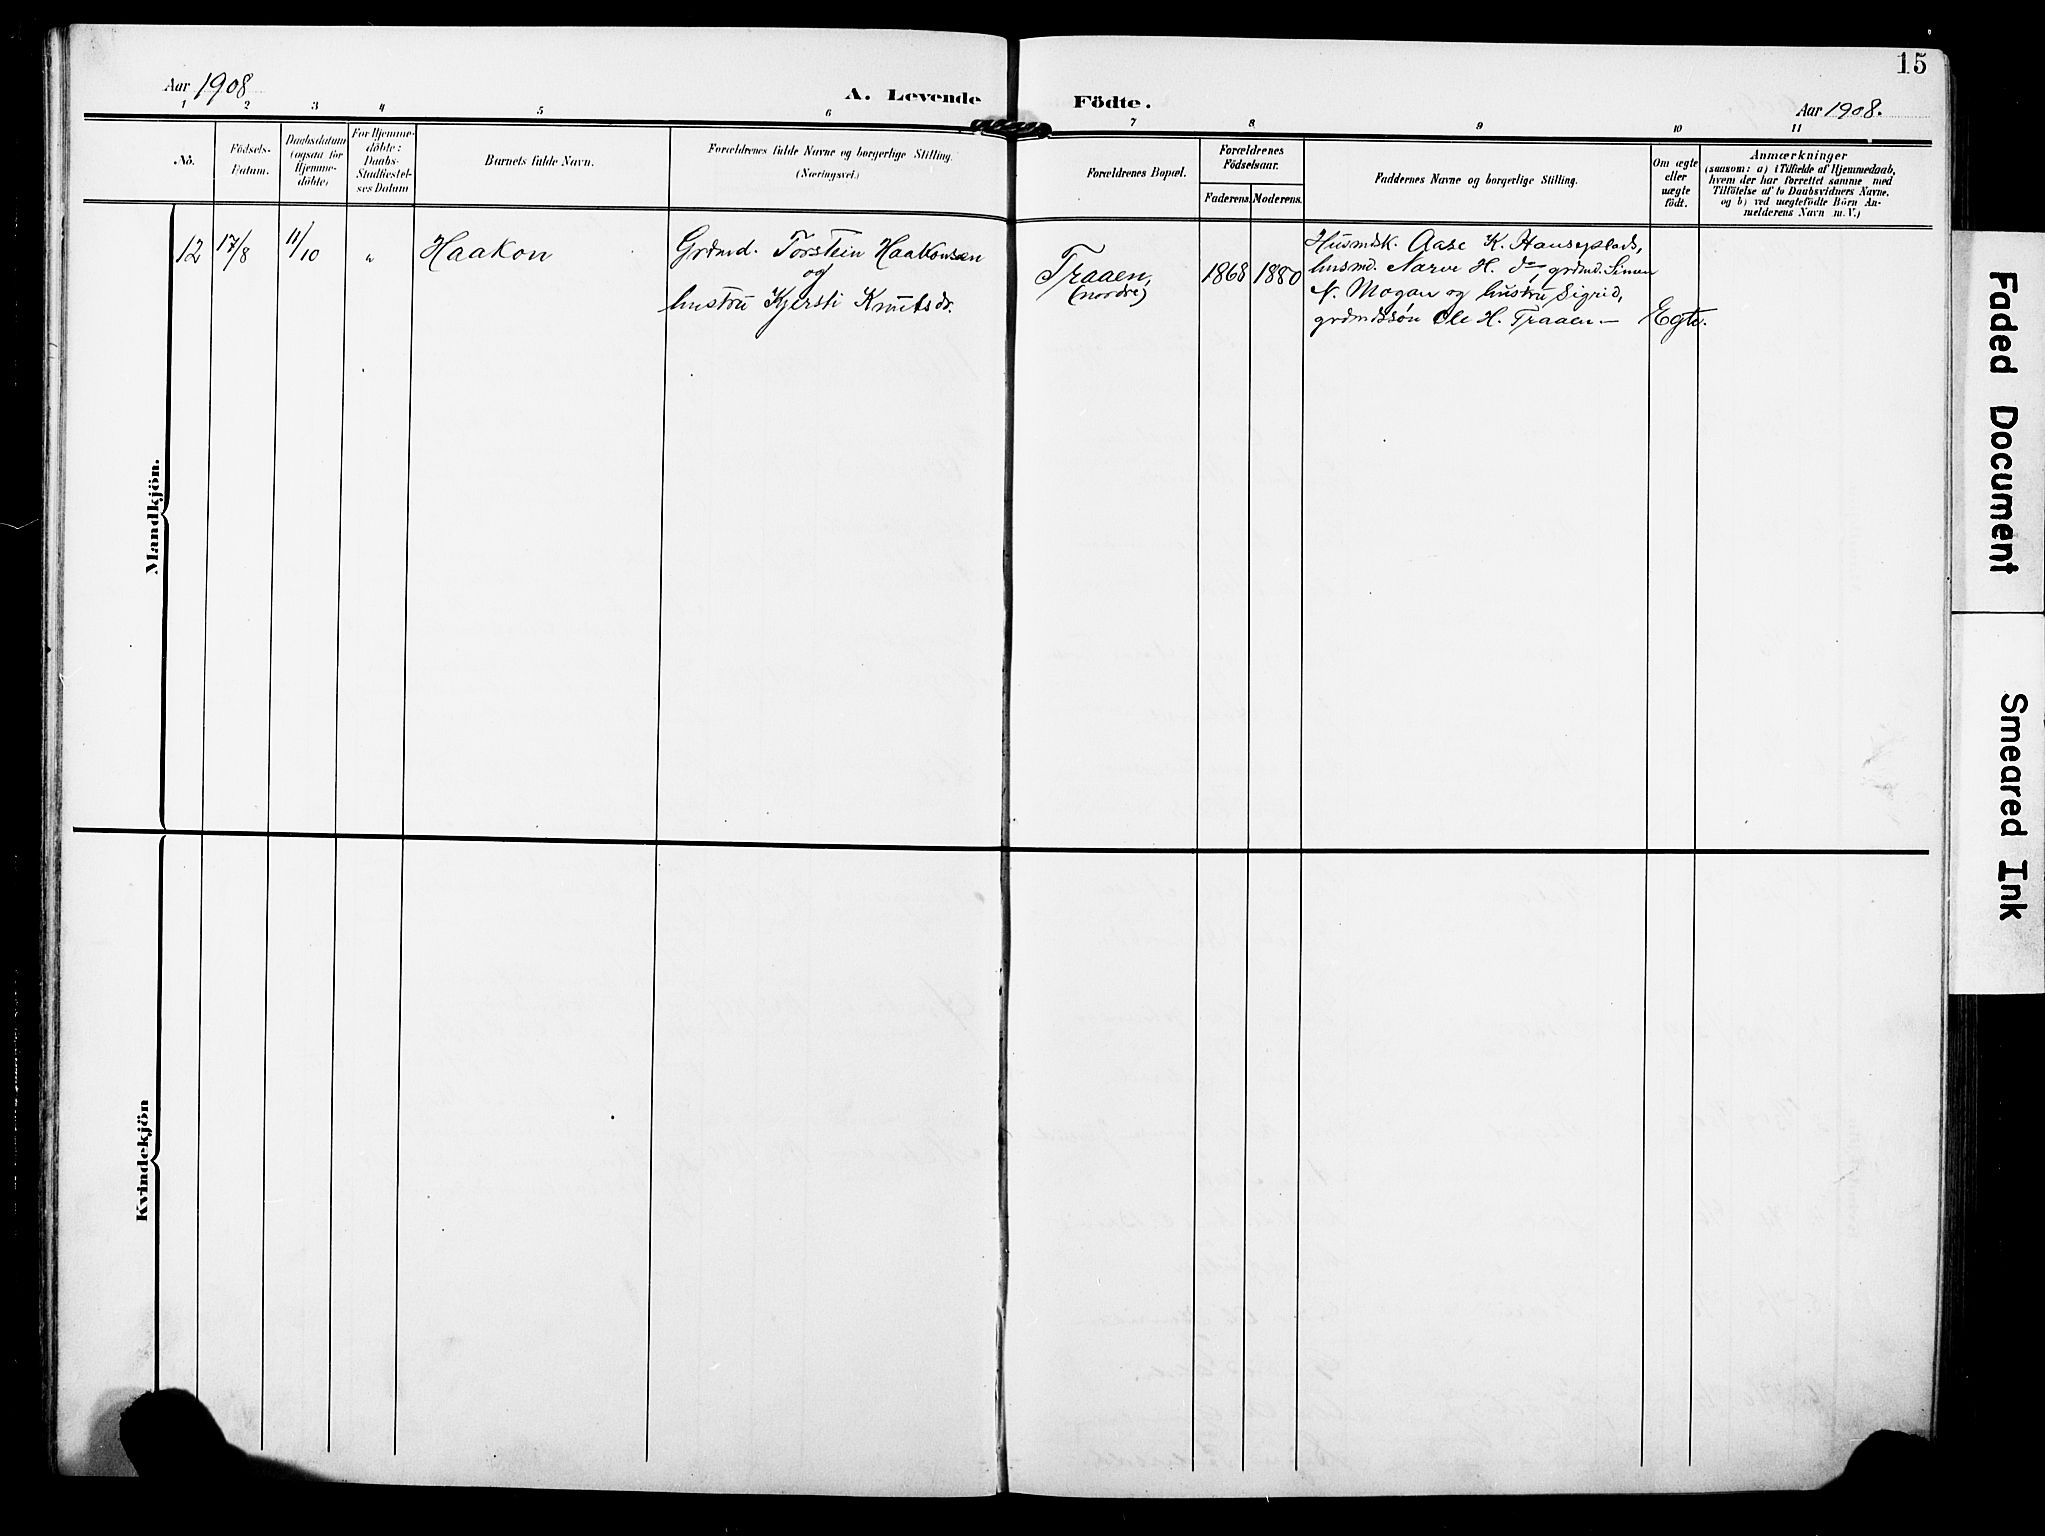 15
Aar 1908
A. Levende Födte.
Aar 1908.
1 2 3 4 5 6 7 8 9 10 11
No.
Födsels-
Datum.
Daabsdatum
(ogsaa for
Hjemme-
döbte)
For Hjemme-
döbte:
Daabs-
Stadfæstel-
ses Datum
Barnets fulde Navn.
Forældrenes fulde Navne og borgerlige Stilling.
(Næringsvei.)
Forældrenes Bopæl.
Forældrenes
Födselsaar.
Faderens. Moderens.
Faddernes Navne og borgerlige Stilling.
Om ægte
eller
uægte
födt.
Anmærkninger
(saasom: a) i Tilfælde af Hjemmedaab,
hvem der har forrettet samme med
Tilföielse af to Daabsvidners Navne,
og b) ved uægtefödte Börn An-
melderens Navn m. V.)
Mandkjön.
12 17/8 11/10 " Haakon
Grdmd. Torstein Haakonsen
og
hustru Kjersti Knutsdr.
Traaen,
(nordre)
1868 1880
Husmdsk. Aase K. Hansesplads,
husmd. Narve H. do, grdmd. Simen
N. Mogan og hustru Sigrid,
grdmdssøn Ole H. Traaen—
Egte.
Kvindekjön
Faded Document
Smeared Ink